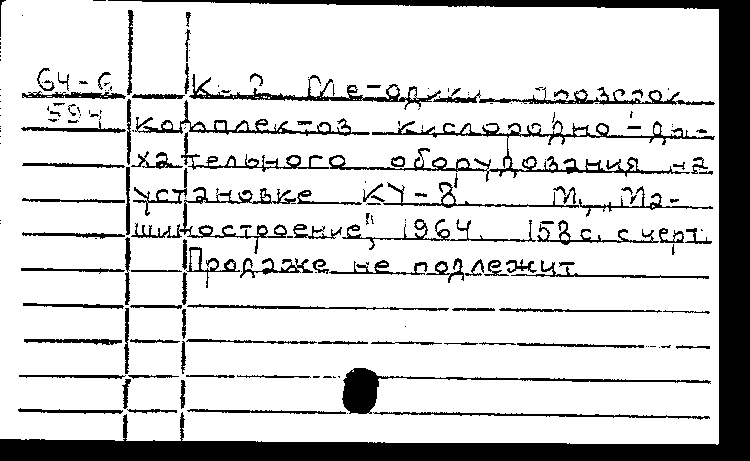 64-6 Кн. 2. Методики проверок
594 комплектов кислородно-ды-
хательного оборудования на
установке КУ-8. М., „Ма-
шиностроение", 1964. 158 с. с черт.
Продаже не подлежит.